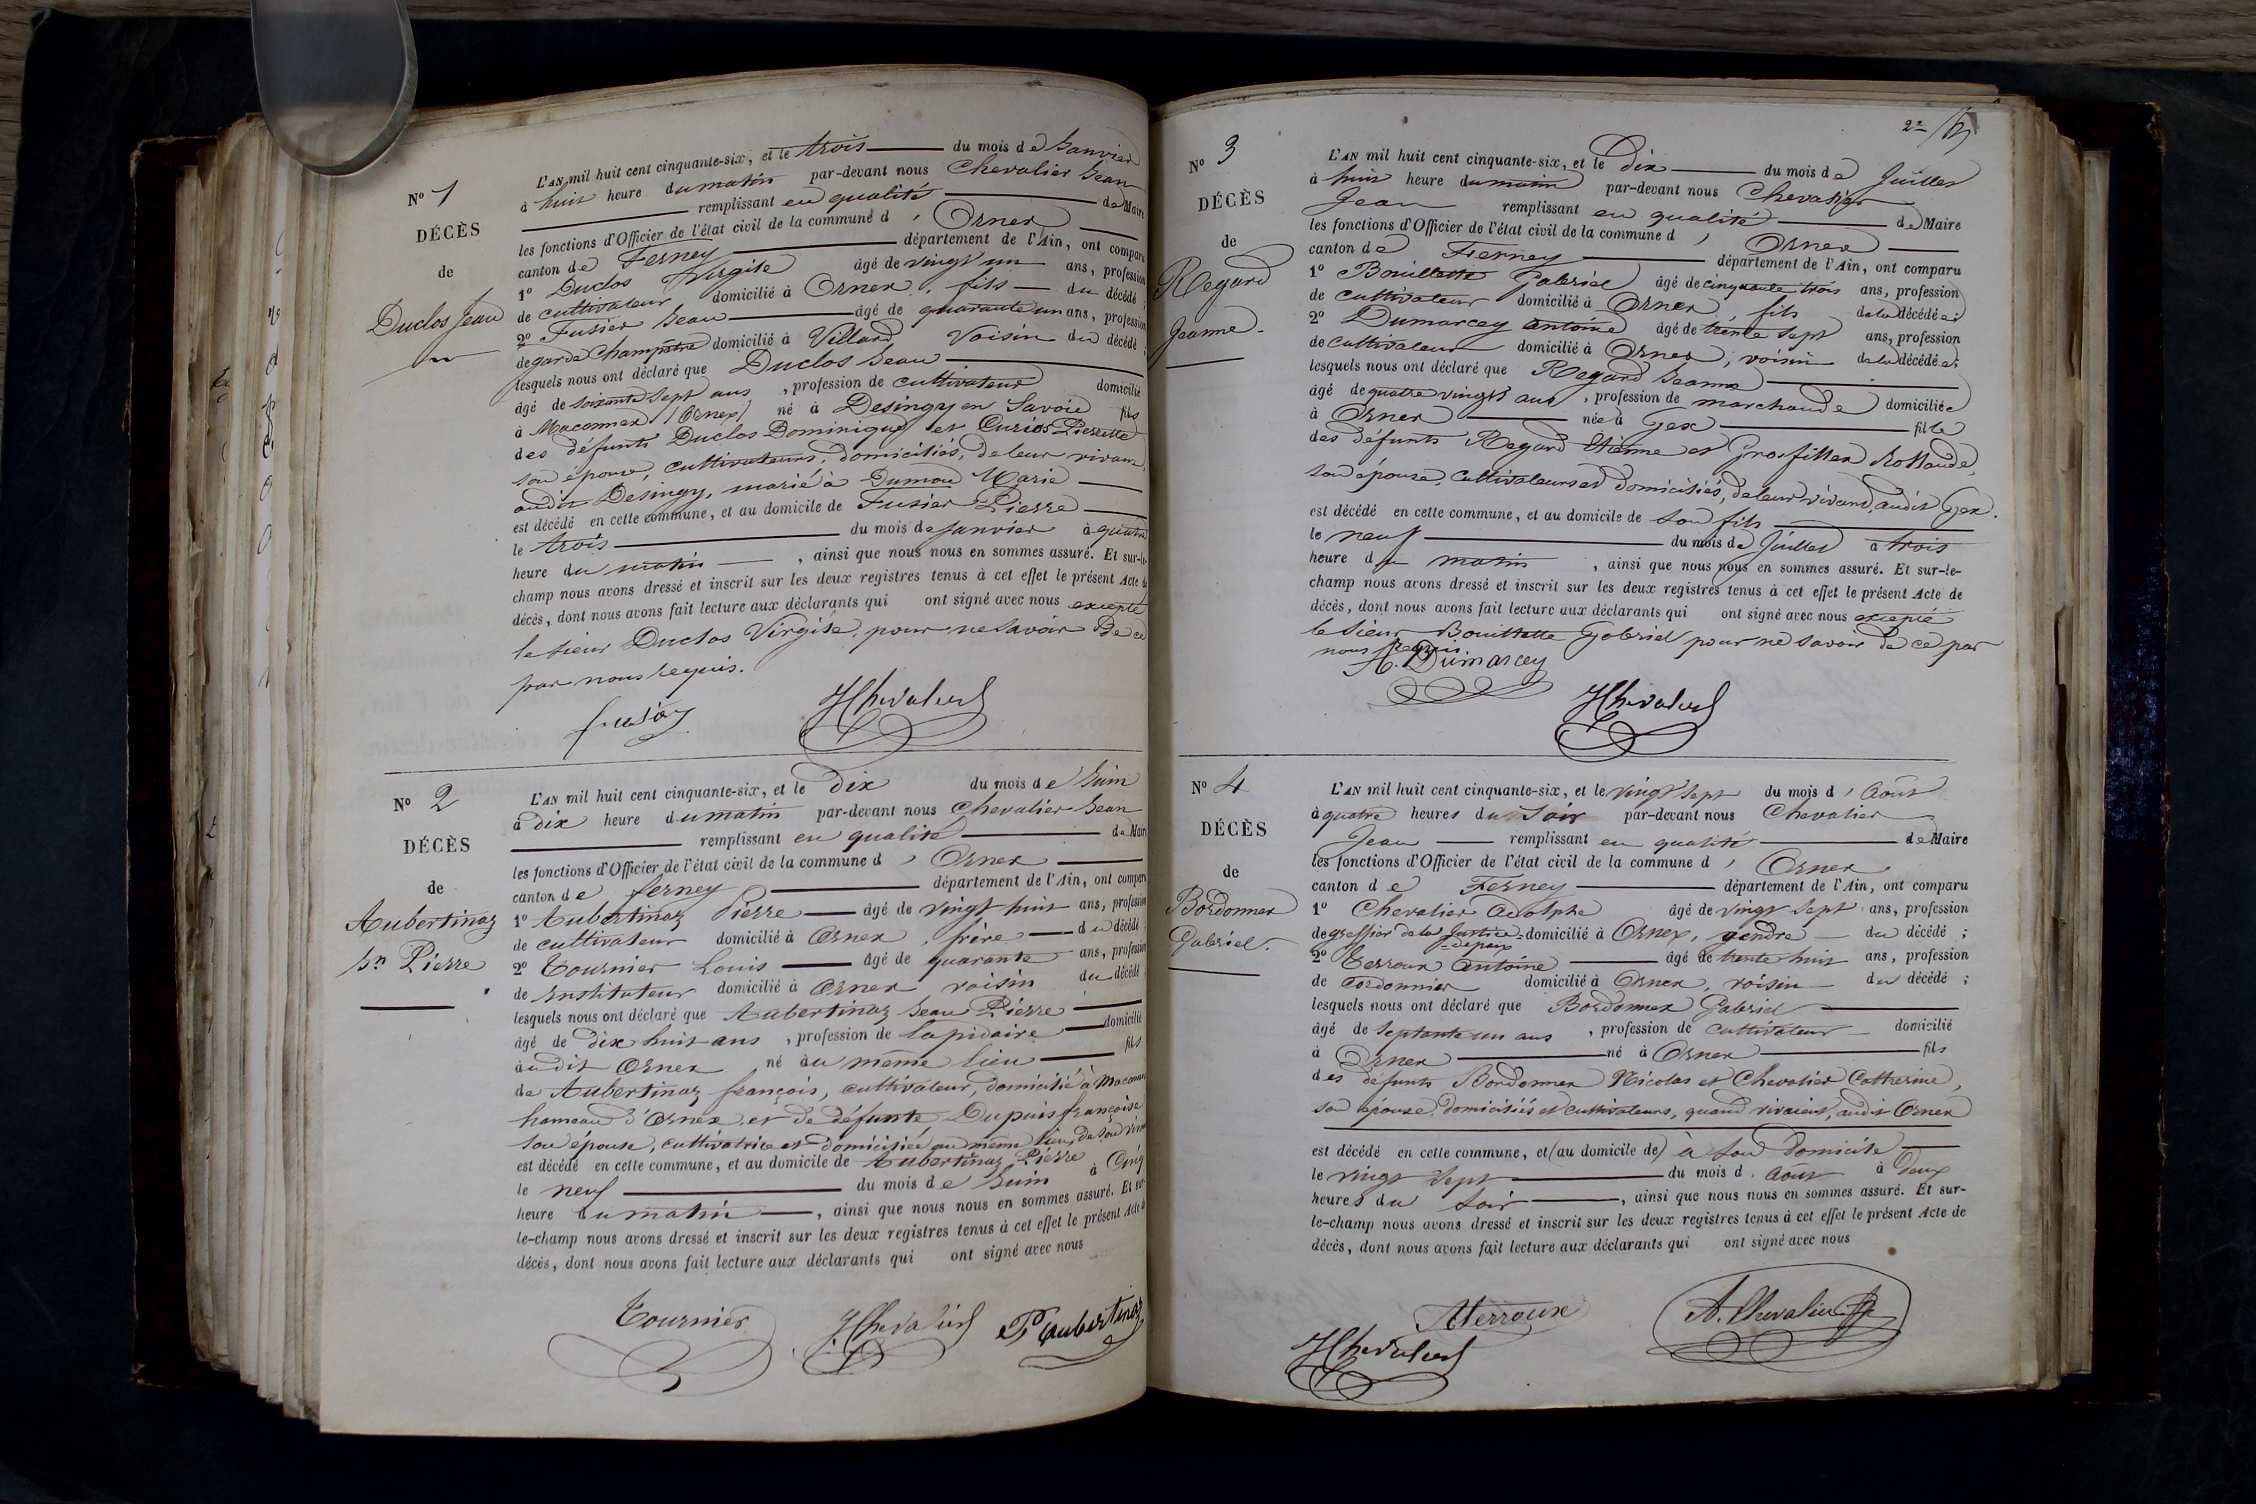 N° 1
DÉCÈS
de
Duclos Jean
L'AN mil huit cent cinquante-six, et le trois du mois de Janvier
à huit heure du matin par-devant nous Chevalier Jean
remplissant en qualité de Maire
les fonctions d'Officier de l'état civil de la commune d' Ornex
canton de Ferney département de l'Ain, ont comparu
1° Duclos Virgile âgé de vingt un ans, profession
de cultivateur domicilié à Ornex, fils du décédé
2° Fusier Jean âgé de quarante un ans, profession
de garde Champêtre domicilié à Villard Voisin du décédé;
lesquels nous ont déclaré que Duclos Jean
âgé de soixante sept ans, profession de cultivateur domicilié
à Maconnex (Ornex) né à Desingy en Savoie fils
des défunts Duclos Dominique et Curios Pierrette
son épouse, cultivateurs, domiciliés, de leur vivant,
audit Desingy, marié à Dumon Marie
est décédé en cette commune, et au domicile de Fusier Pierre
le trois du mois de Janvier à quatre
heure du matin, ainsi que nous nous en sommes assuré. Et sur-le-
champ nous avons dressé et inscrit sur les deux registres tenus à cet effet le présent Acte de
décès, dont nous avons fait lecture aux déclarants qui ont signé avec nous excepté
le sieur Duclos Virgile, pour ne savoir De ce
par nous requis.
JChevalier
N° 2
DÉCÈS
de
Aubertinaz
Jn Pierre
L'AN mil huit cent cinquante-six, et le dix du mois de Juin
à dix heure du matin par-devant nous Chevalier Jean
remplissant en qualité de Maire
les fonctions d'Officier de l'état civil de la commune d' Ornex
canton de ferney département de l'Ain, ont comparu
1° Aubertinaz Pierre âgé de vingt huit ans, profession
de cultivateur domicilié à Ornex, frère du décédé
2° Tournier Louis âgé de quarante ans, profession
de Instituteur domicilié à Ornex voisin du décédé
lesquels nous ont déclaré que Aubertinaz Jean Pierre
âgé de dix huit ans, profession de lapidaire domicilié
audit Ornex né au même lieu fils
de Aubertinaz françois, cultivateur, domicilié à Maconnex
hameau d'Ornex, et de défunte Dupuis françoise
son épouse, cultivatrice et domiciliée au même lieu, de son vivant
est décédé en cette commune, et au domicile de Aubertinaz Pierre
le neuf du mois de Juin à Cinq
heure du matin, ainsi que nous nous en sommes assuré. Et sur-
le-champ nous avons dressé et inscrit sur les deux registres tenus à cet effet le présent Acte de
décès, dont nous avons fait lecture aux déclarants qui ont signé avec nous
Tournier JChevalier P Aubertinaz
N° 3
DÉCÈS
de
Regard
Jeanne
L'AN mil huit cent cinquante-six, et le Dix du mois de Juillet
à huit heure du matin par-devant nous Chevalier
Jean remplissant en qualité de Maire
les fonctions d'Officier de l'état civil de la commune d' Ornex
canton de Ferney département de l'Ain, ont comparu
1° Bouillette Gabriel âgé de cinquante trois ans, profession
de cultivateur domicilié à Ornex, fils de la décédée;
2° Dumarcey antoine âgé de trente sept ans, profession
de cultivateur domicilié à Ornex, voisin de la décédée;
lesquels nous ont déclaré que Regard Jeanne
âgé de quatre vingts ans, profession de marchande domiciliée
à Ornex née à Gex fille
des défunts Regard Etienne et Grosfillex Rollande,
son épouse, Cultivateurs et domiciliés, de leur vivant, audit Gex.
est décédé en cette commune, et au domicile de son fils
le neuf du mois de Juillet à trois
heure du matin, ainsi que nous nous en sommes assuré. Et sur-le-
champ nous avons dressé et inscrit sur les deux registres tenus à cet effet le présent Acte de
décès, dont nous avons fait lecture aux déclarants qui ont signé avec nous excepté
le sieur Bouillette Gabriel pour ne savoir de ce par
nous requis
A. Dumarcey
JChevalier
N° 4
DÉCÈS
de
Bordonnex
Gabriel.
L'AN mil huit cent cinquante-six, et le vingt sept du mois d' Août
à quatre heures du Soir par-devant nous Chevalier
Jean remplissant en qualité de Maire
les fonctions d'Officier de l'état civil de la commune d' Ornex
canton de Ferney département de l'Ain, ont comparu
1° Chevalier Adolphe âgé de vingt sept ans, profession
de greffier de la Justice = domicilié à Ornex, gendre du décédé;
= de paix
2° Terroux Antoine âgé de trente huit ans, profession
de Cordonnier domicilié à Ornex, voisin du décédé;
lesquels nous ont déclaré que Bordonnex Gabriel
âgé de septante un ans, profession de Cultivateur domicilié
à Ornex né à Ornex fils
des défunts Bordonnex Nicolas et Chevalier Catherine,
son épouse, domiciliés et cultivateurs, quand vivaient, audit Ornex
est décédé en cette commune, et (au domicile de) à son domicile
le vingt sept du mois d. Août à deux
heures du soir, ainsi que nous nous en sommes assuré. Et sur-
le-champ nous avons dressé et inscrit sur les deux registres tenus à cet effet le présent Acte de
décès, dont nous avons fait lecture aux déclarants qui ont signé avec nous
ATerroux A. Chevalier
JChevalier